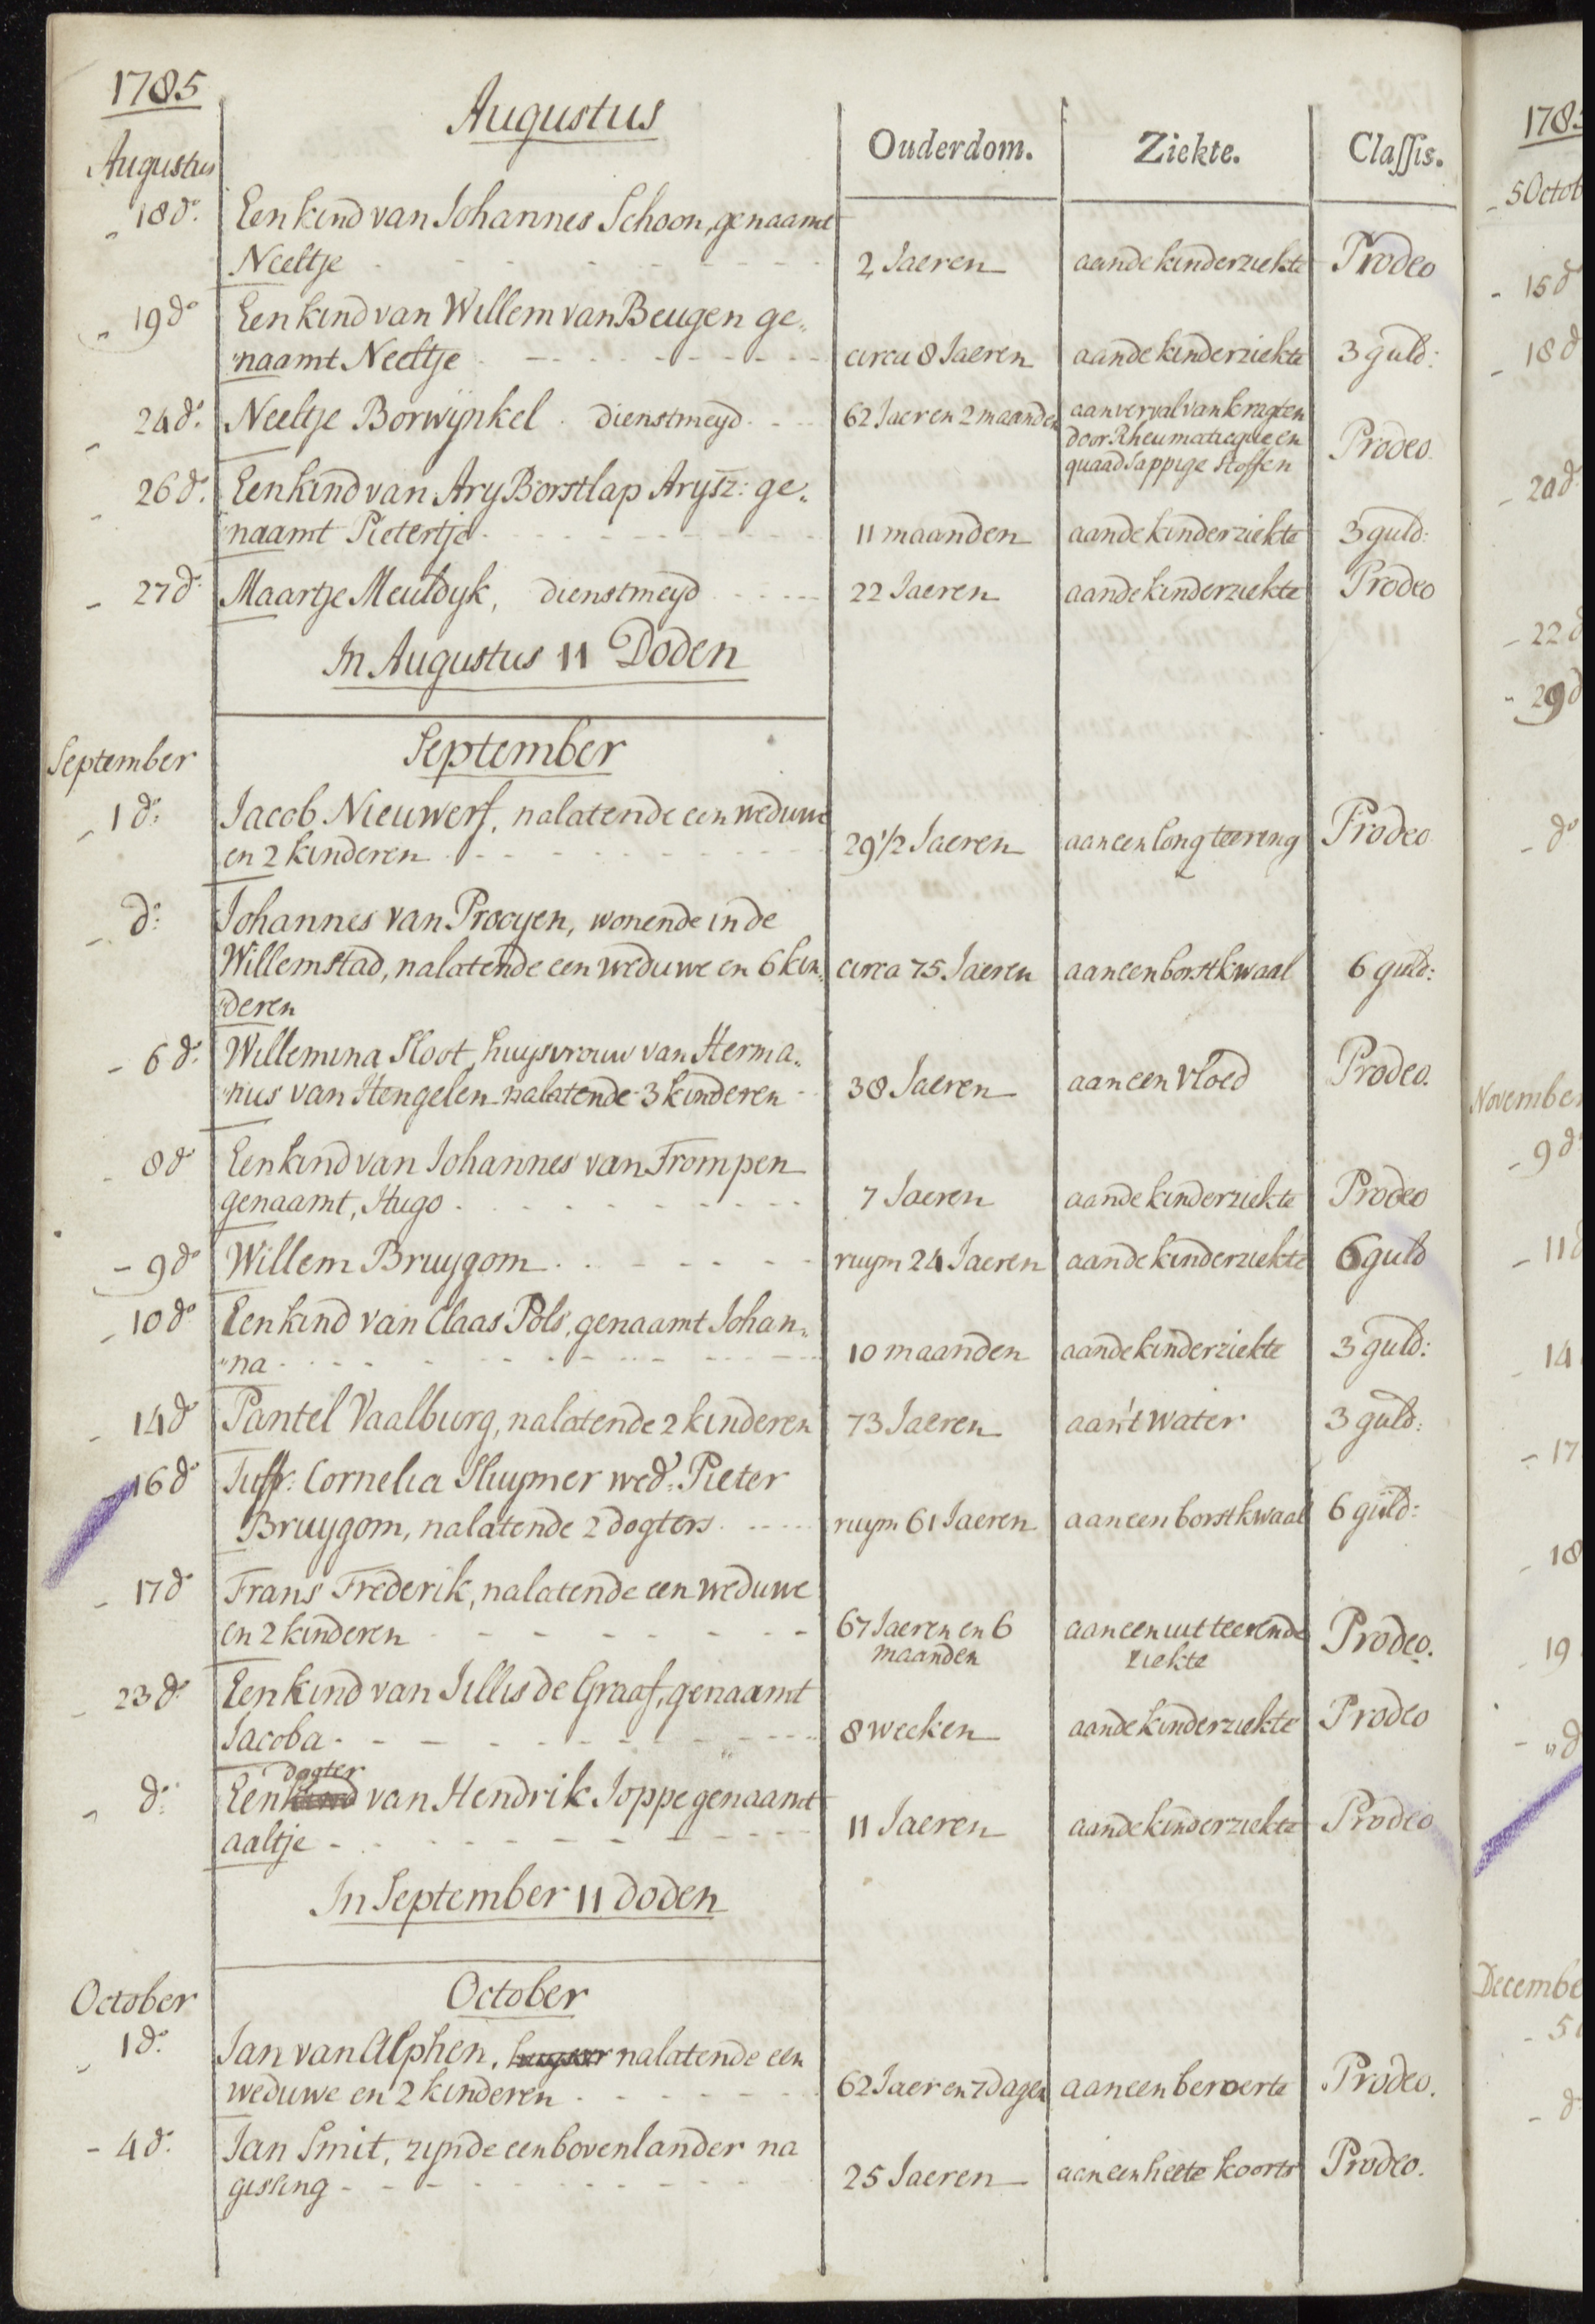 1785
Augustus
Ouderdom. Ziekte. Classis.
Augustus
18 do. Een kind van Johannes Schoon, genaamt
Neeltje 2 Jaeren aan de kinderziekte Prodeo
19 do Een kind van Willem van Beugen ge„
„naamt Neeltje circa 8 Jaeren aan de kinderziekte 3 guld:
24 do. Neeltje Borwÿnkel dienstmeyd 62 Jaer en 2 maanden aan verval van kragten
door Rheumatieque en Prodeo.
quaad sappige stoffen
26 do. Een kind van Ary Borstlap Arysz: ge„
„naamt Pietertje 11 maanden aan de kinderziekte 3 guld:
27 do Maartje Meuldyk, dienstmeyd 22 Jaeren aan de kinderziekte Prodeo
In Augustus 11 Doden
September
September
1 do: Jacob Nieuwerf, nalatende een weduwe
en 2 kinderen 29 1/2 Jaeren aan een long teering Prodeo
do: Johannes van Prooyen, wonende in de
Willemstad, nalatende een weduwe en 6 kin„ circa 75 Jaeren aan een borstkwaal 6 guld:
„deren
6 do. Willemina Sloot, huysvrouw van Herma„
„nus van Hengelen nalatende 3 kinderen 38 Jaeren aan een vloed Prodeo.
8 do Een kind van Johannes van Trompen
genaamt, Hugo 7 Jaeren aan de kinderziekte Prodeo
9 do Willem Bruygom ruym 24 Jaeren aan de kinderziekte 6 guld
10 do Een kind van Claas Pols, genaamt Johan„
„na 10 maanden aan de kinderziekte 3 guld:
14 do Pantel Vaalburg, nalatende 2 kinderen 73 Jaeren aan't water 3 guld:
16 do Juffr: Cornelia Sluymer wed: Pieter
Bruygom, nalatende 2 dogters ruym 61 Jaeren aan een borstkwaal 6 guld:
17 do Frans Frederik, nalatende een weduwe
en 2 kinderen 67 Jaeren en 6 aan een uitteerende Prodeo.
maanden ziekte
23 do Een kind van Jillis de Graaf, genaamt
Jacoba 8 weeken aan de kinderziekte Prodeo
dogter
do: Een kind van Hendrik Joppe genaamt
aaltje 11 Jaeren aan de kinderziekte Prodeo
In September 11 doden
October
October
1 do. Jan van Alphen, nalatende een
weduwe en 2 kinderen 62 Jaer en 7 dagen aan een beroerte Prodeo.
4 do. Jan Smit, zynde een bovenlander na
gissing 25 Jaeren aan een heete koorts Prodeo.
178
5 Octob
15 d
18 d
20 d
22 d
29 d
do
November
9 do
11 d
14
17
18
19
„ d
Decembe
5
d